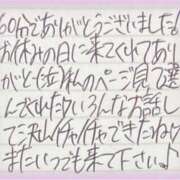 60分でおりがとうございました!
お休みの日に来てくれてあり
がと(泣)れのページ見て選
んでくれたないろんなお話し
て天んイチャイチャできたねけ
またいつでも来て下さい♪